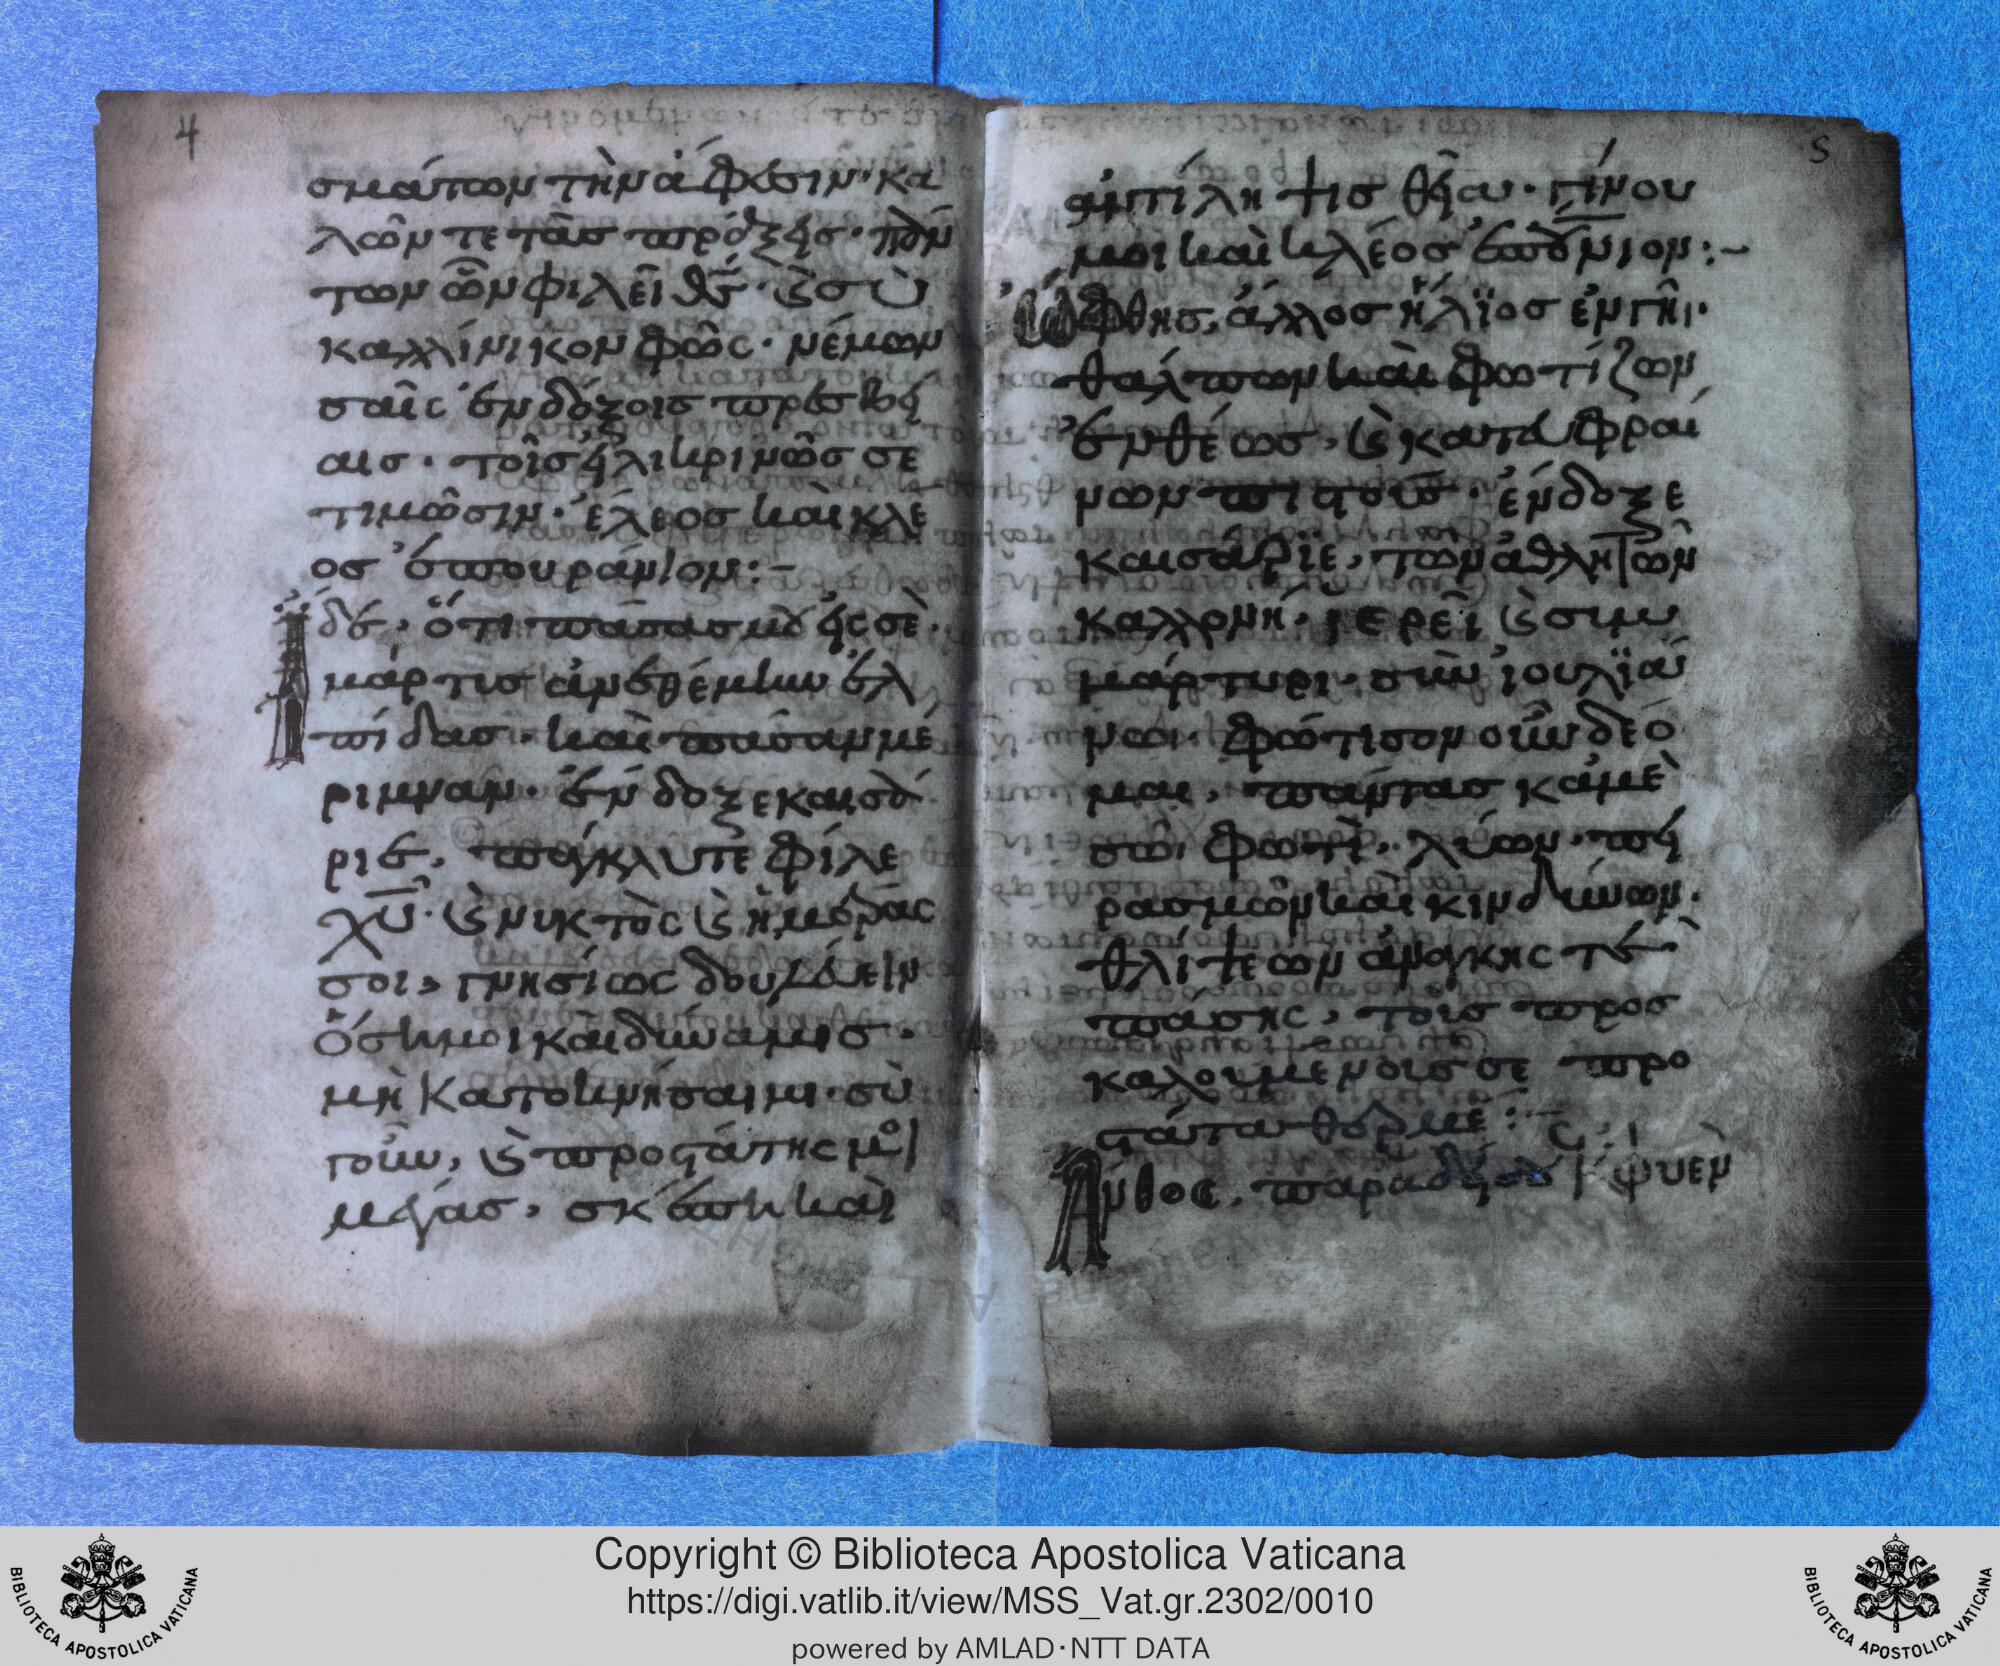 4
σμάτων τὴν ἄφεσιν· κα
λῶν τε τὰσ πράξεις· πάν
των ὧν φιλεῖ θς· ϗ σὺ
καλλίνικον φῶς· νέμων
σαῖς ἐνδόξοισ πρεσβεί
αισ· τοῖσ εἰλικρινῶσ σε
τιμῶσιν· ἔλεοσ καὶ κλέ
οσ ἐπουράνιον:-
Ἰδέ· ὅτι πάσασ μου εἰς σὲ·
μάρτισ ἀνεθέμην ἐλ
πίδασ· καὶ πᾶσαν μέ
ριμναν· ἔνδοξε καισά
ριε, πάγκλυτε φίλε
χυ· ϗ νυκτὸς ϗ ἡμέρας
σοι, γνησίως δουλεύειν
ὅση μοι καὶ δύναμισ·
μὴ κατοκνήσαιμι· σὺ
γοῦν, ϗ προστάτης μοι
μέγασ, σκέπη καὶ
5
ἀντίληψισ θείω· γίνου
μοι καὶ κλέοσ ἐπουράνιον:-
Ὤφθησ, ἄλλοσ ἥλϊοσ ἐν γῆι·
θάλπων καὶ φωτίζων
ἐνθέωσ, ϗ κατευφραί
νων πιστοὺσ· ἔνδοξε
καισάρϊε, τῶν ἀθλητῶν
καλλονή· ἱερεῖ ϗ σιμω
μάρτυρι· σὺν ἰουλϊα
νω· φώτισον οὖν δέο
μαι, πάντασ κἀμὲ
σῶ φωτὶ, λύων· πει
ρασμῶν καὶ κινδύνων·
θλίψεων ἀνάγκης τὲ
πάσης, τοῖσ προσ
καλουμένοισ σε προ
στάτα θερμέ:-
Ἄνθος, παραδείσου
Copyright © Biblioteca Apostolica Vaticana
https://digi.vatlib.it/view/MSS_Vat.gr.2302/0010
powered by AMLAD·NTT DATA
BIBLIOTECA APOSTOLICA VATICANA
BIBLIOTECA APOSTOLICA VATICANA